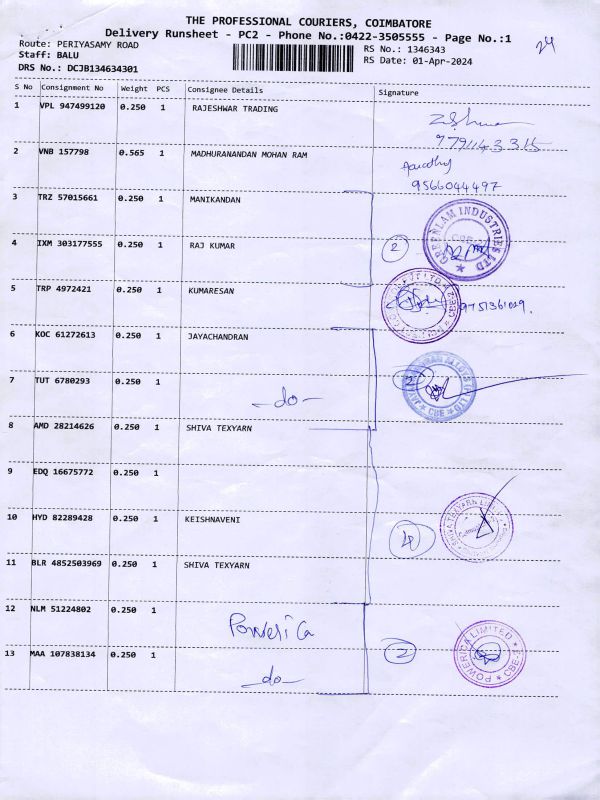 THE PROFESSIONAL COURIERS, COIMBATORE
Delivery Runsheet - PC2 - Phone No.:0422-3505555 - Page No.:1
Route: PERIYASAMY ROAD
RS No.: 1346343
Staff: BALU
RS Date: 01-Apr-2024
DRS No.: DCJB134634301
S No Consignment No Weight PCS Consignee Details Signature
1 VPL 947499120 0.250 1 RAJESHWAR TRADING
2 VNB 157798 0.565 1 MADHURANANDAN MOHAN RAM
9566044497
3 TRZ 57015661 0.250 1 MANIKANDAN
GREENLAM INDUSTRIES LTD
4 IXM 303177555 0.250 1 RAJ KUMAR 2
5 TRP 4972421 0.250 1 KUMARESAN
6 KOC 61272613 0.250 1 JAYACHANDRAN
7 TUT 6780293 0.250 1 2
-do-
CBE
8 AMD 28214626 0.250 1 SHIVA TEXYARN
9 EDQ 16675772 0.250 1
10 HYD 82289428 0.250 1 KEISHNAVENI
4
SHIVA TEXYARN
11 BLR 4852503969 0.250 1 SHIVA TEXYARN
12 NLM 51224802 0.250 1
Powerica
13 MAA 107838134 0.250 1 2
POWERICA LIMITED
-do-